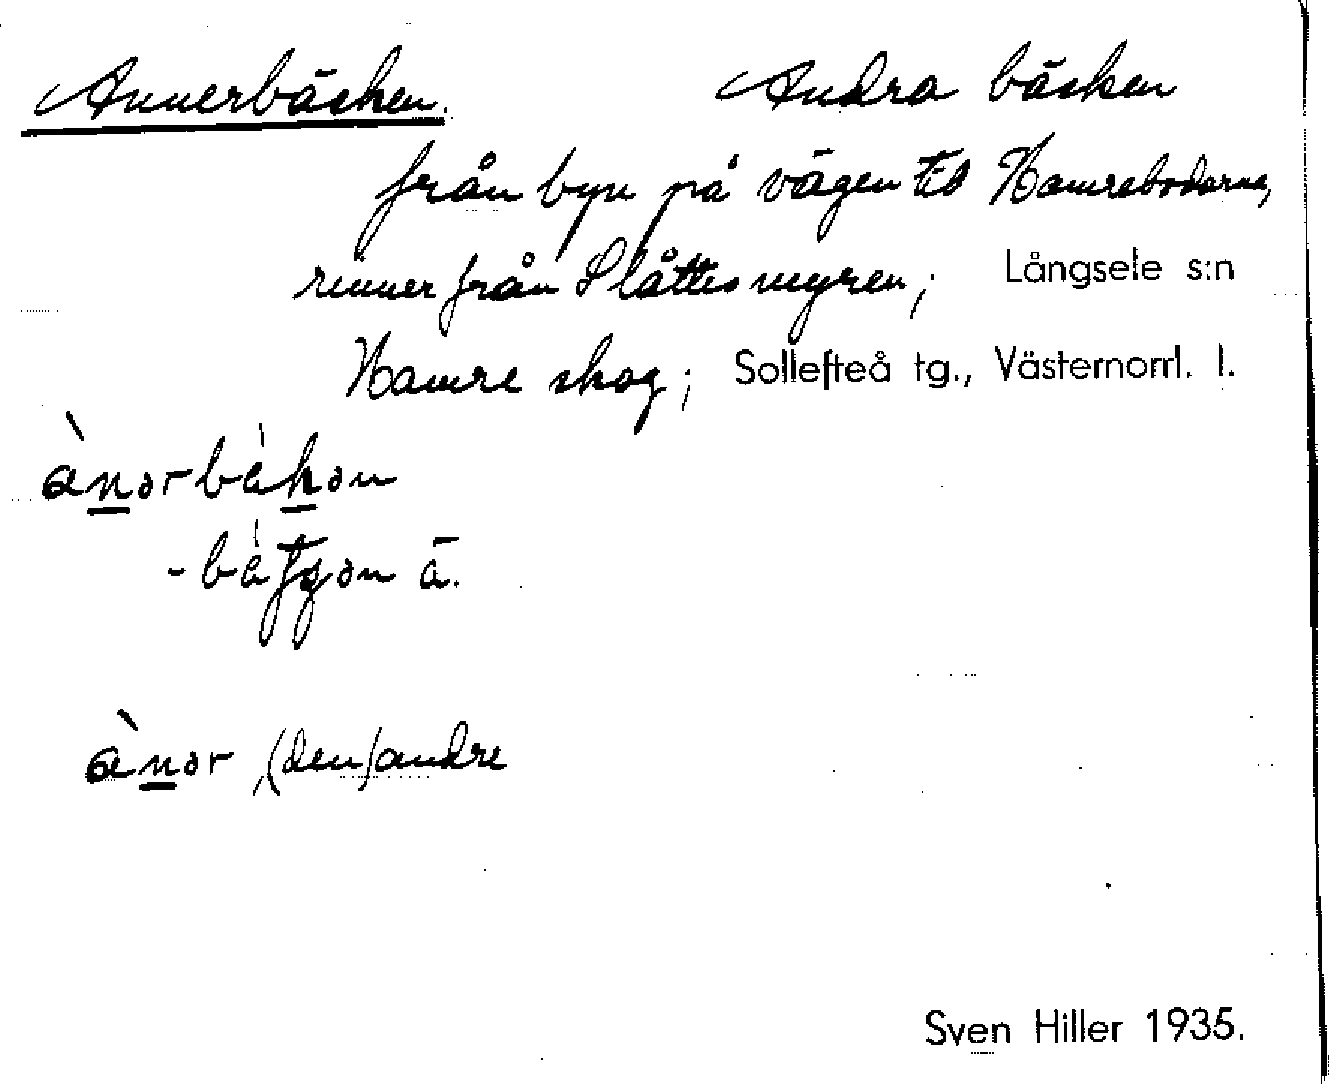 Annerbäcken. Andra bäcken
från byn på vägen till Hamrebodarna,
rinner från Slåttesmyren; Långsele s:n
Hamre skog; Sollefteå tg., Västernorrl. l.
ànərbàkən
-bàtʃən ä.
ànər (den) andre
Sven Hiller 1935.